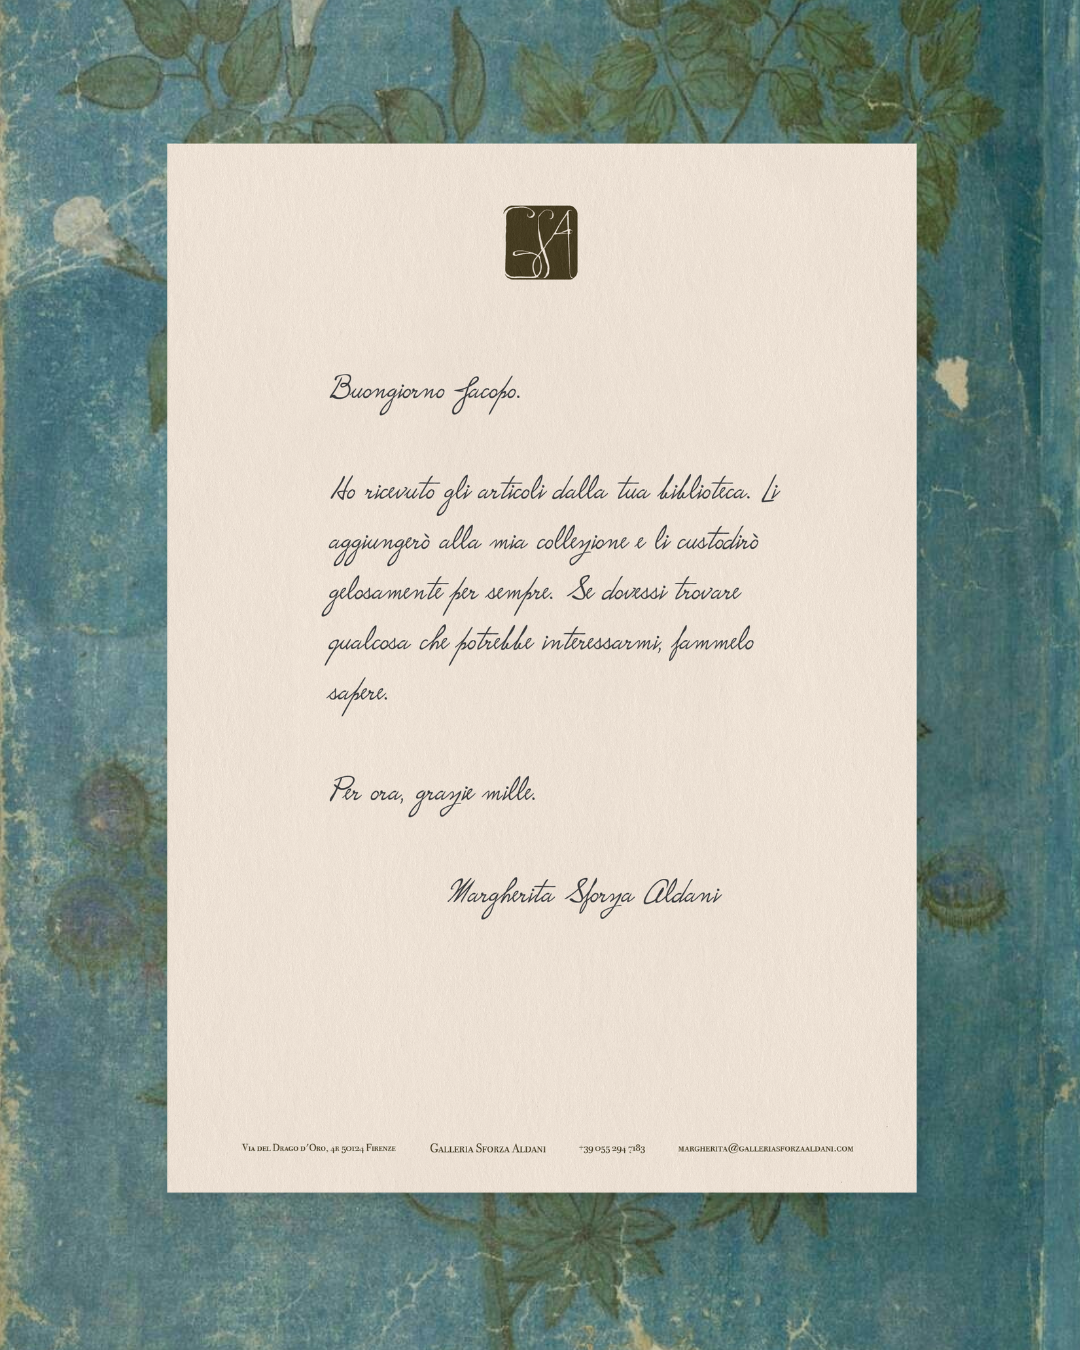 GSA
Buongiorno Jacopo.
Ho ricevuto gli articoli dalla tua biblioteca. Li
aggiungerò alla mia collezione e li custodirò
gelosamente per sempre. Se dovessi trovare
qualcosa che potrebbe interessarmi, fammelo
sapere.
Per ora, grazie mille.
Margherita Sforza Aldani
Via del Drago d'Oro, 4R 50124 Firenze Galleria Sforza Aldani +39 055 294 7183 margherita@galleriasforzaaldani.com